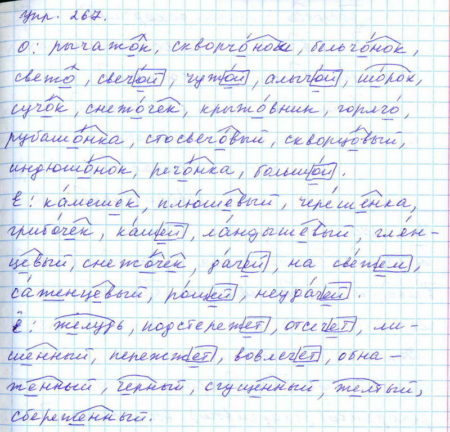 упр. 267.
О: рычажок, скворчонок, бельчонок,
свежо, свечой, чужой, алычой, шорох,
сучок, снежочек, крыжовник, горячо,
рубашонка, стосвечовый, скворцовый,
индюшонок, речонка, большой.
Е: камешек, плюшевый, черешенка,
грибочек, кашей, ландышевый, глян-
цевый, снежочек, дачей, на свежем,
саженцевый, рощей, неудачей.
Ё: желудь, подстережет, отсечет, ли-
шенный, пережжет, вовлечет, обна-
женный, черный, сгущенный, желтый,
сбереженный.